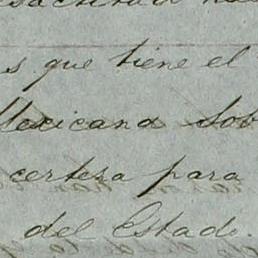 s que tiene el
Mexicana sob
certesa para
del Estado.